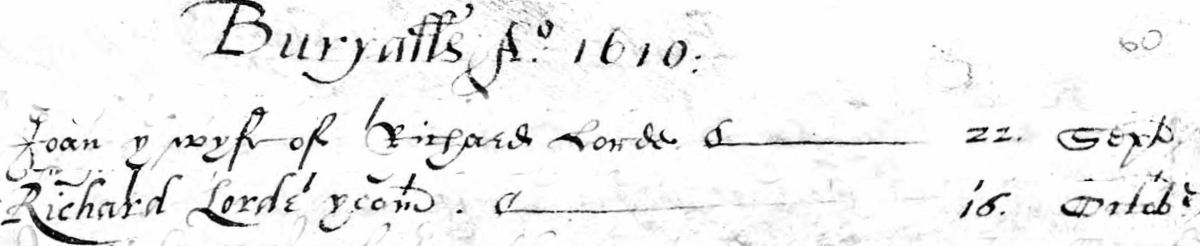 Buryalls Ao. 1610: 60
Joan y wyfe of Richard Lorde 22. Sept.
Richard Lorde yeom. 16. Octobe